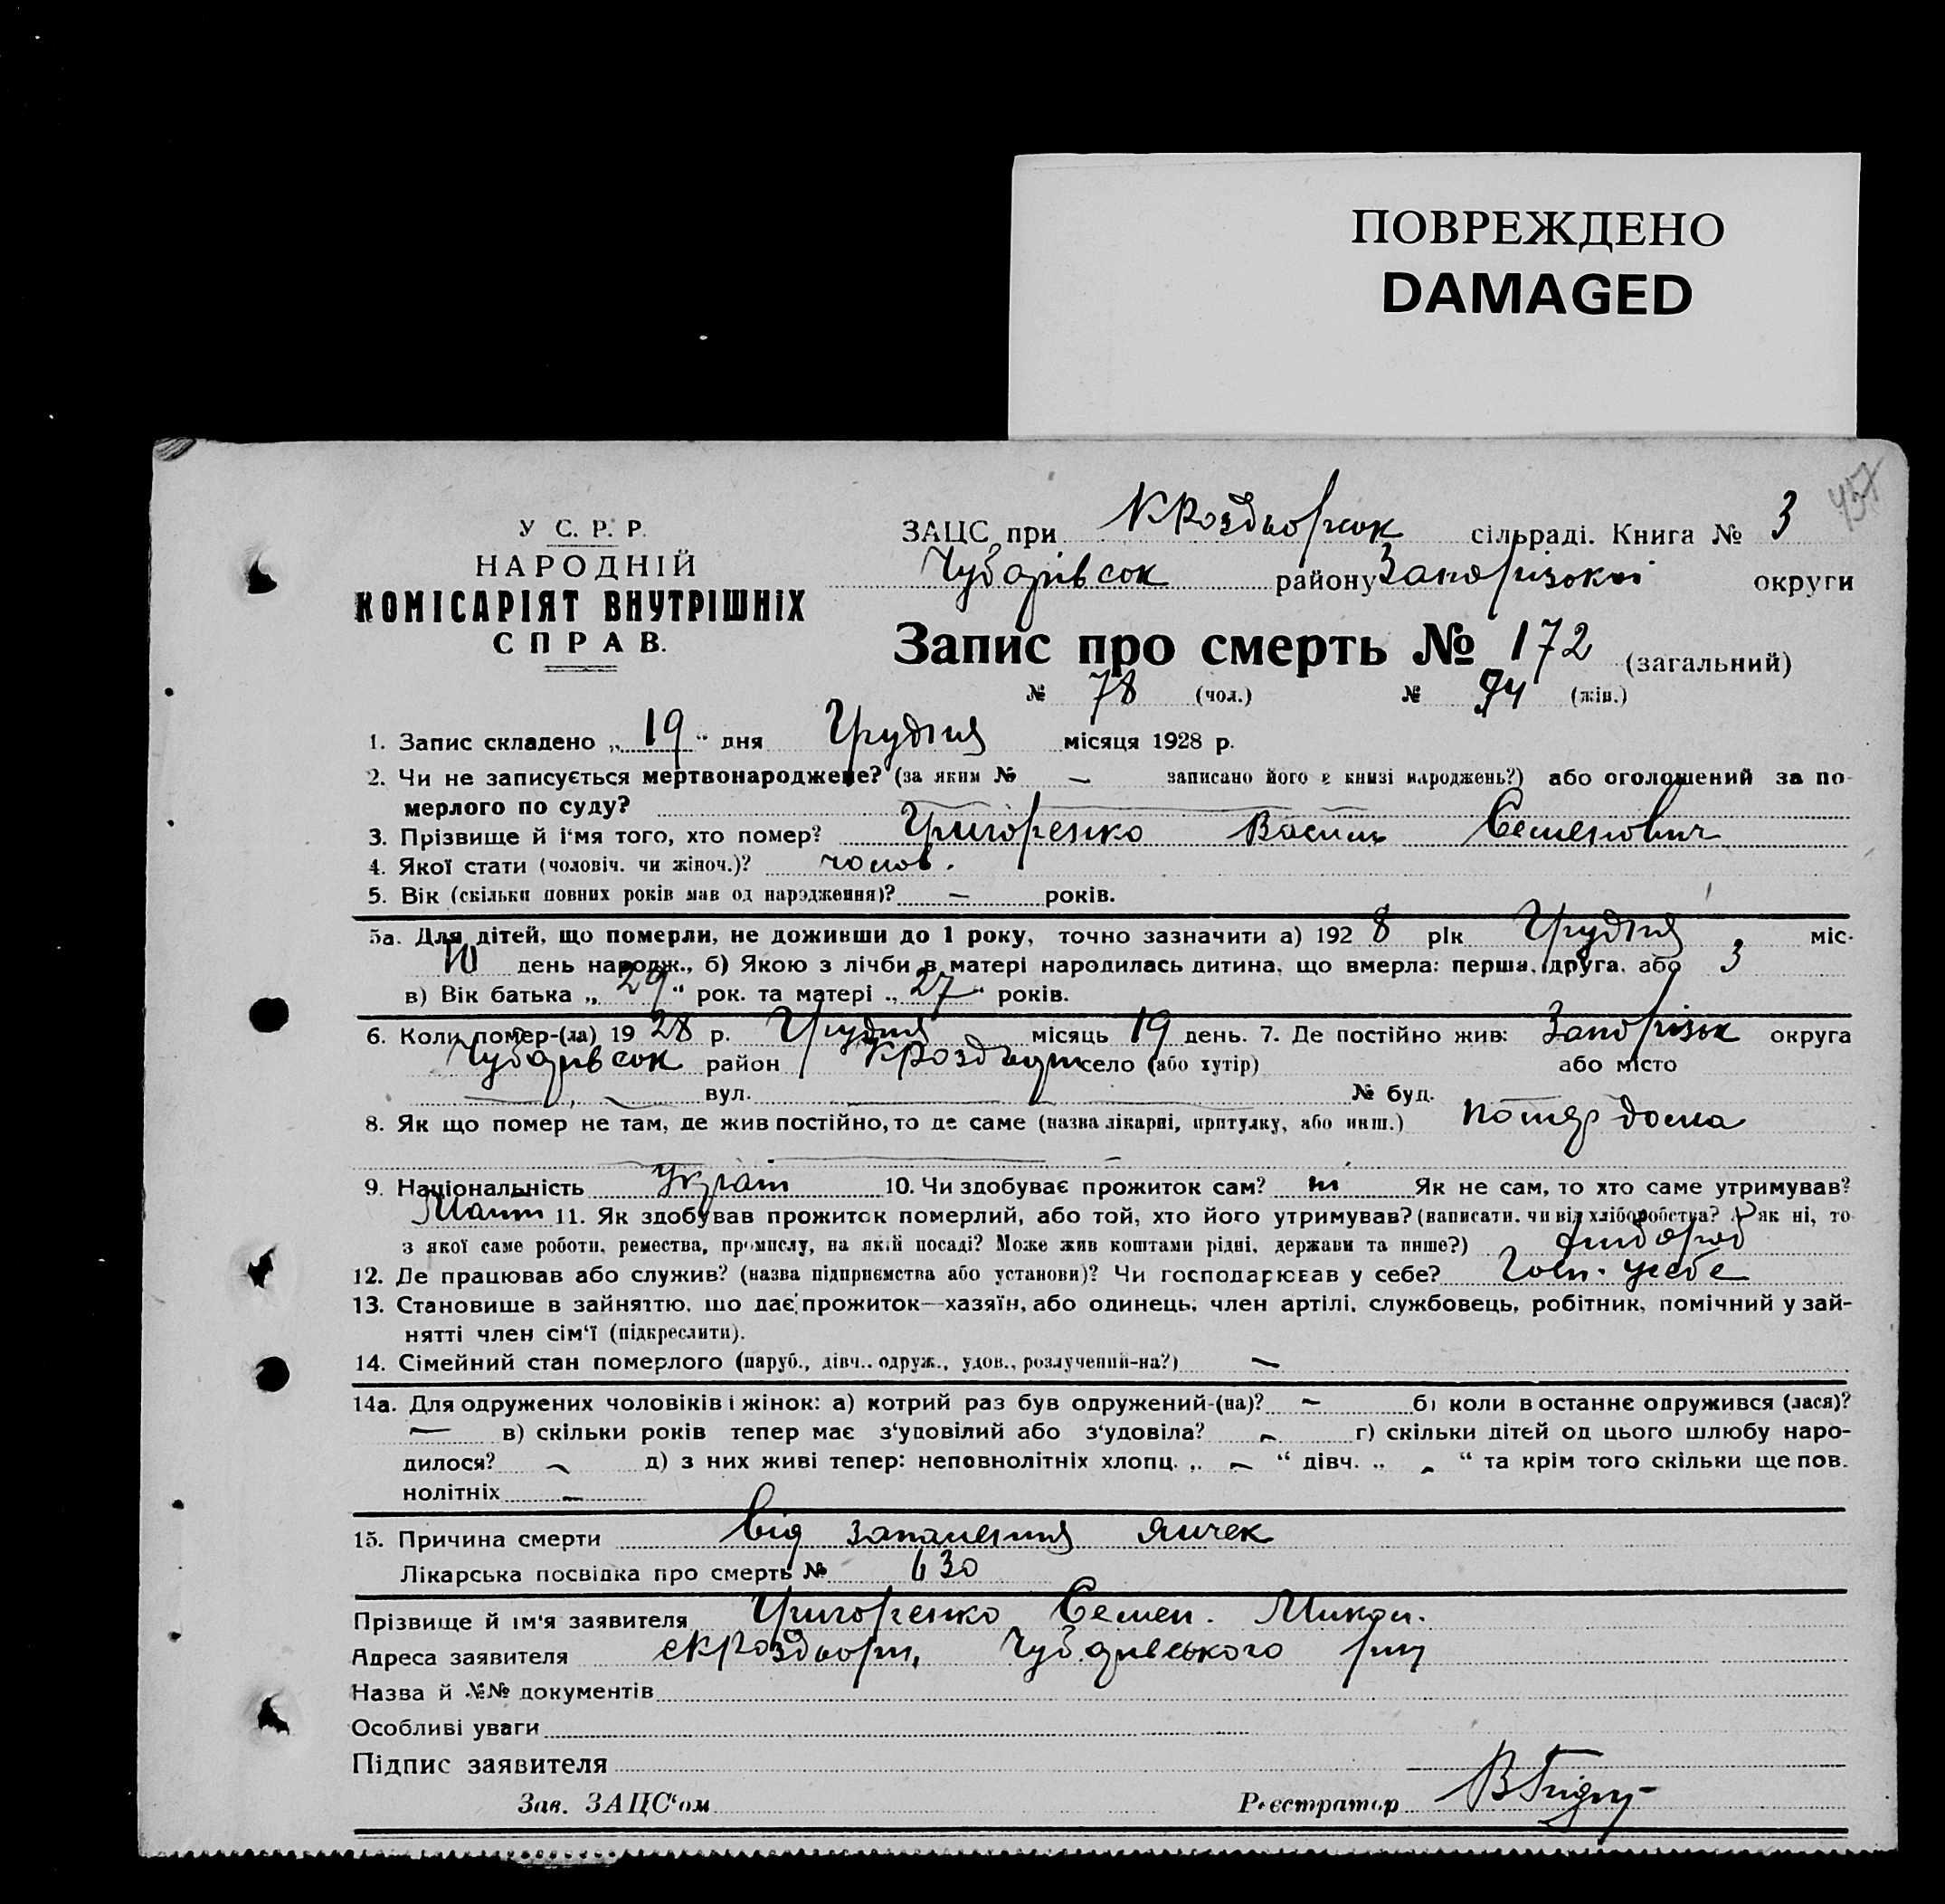 ПОВРЕЖДЕНО
DAMAGED
457
У С. Р. Р.
НАРОДНІЙ
КОМІСАРІЯТ ВНУТРІШНІХ
СПРАВ.
ЗАЦС при КРоздорськ сільраді. Книга № 3
Чубарівськ району Запорізької округи
Запис про смерть № 172 (загальний)
№ 78 (чол.) № 94 (жін.)
1. Запис складено „ 19 “ дня Грудня місяця 1928 р.
2. Чи не записується мертвонароджене? (за яким № — записано його в книзі народжень?) або оголошений за по-
мерлого по суду?
3. Прізвище й і‘мя того, хто помер? Григоренко Василь Семенович
4. Якої стати (чоловіч. чи жіноч.)? чолов.
5. Вік (скільки повних років мав од народження)? — років.
5а. Для дітей, що померли, не доживши до 1 року, точно зазначити а) 192 8 рік Грудня міс.
10 день народж., б) Якою з лічби в матері народилась дитина, що вмерла: перша, друга, або 3
в) Вік батька „ 29 “ рок. та матері „ 27 “ років.
6. Коли помер-(ла) 19 28 р. Грудня місяць 19 день. 7. Де постійно жив: Запорізьк округа
Чубарівськ район село (або хутір) або місто
— вул. — № буд.
8. Як що помер не там, де жив постійно, то де саме (назва лікарні, притулку, або инш.) помер дома
9. Національність Україн 10. Чи здобуває прожиток сам? ні Як не сам, то хто саме утримував?
11. Як здобував прожиток померлий, або той, хто його утримував? (написати, чи від хліборобства? А як ні, то
з якої саме роботи, ремества, промислу, на якій посаді? Може жив коштами рідні, держави та инше?) хлібороб
12. Де працював або служив? (назва підприємства або установи)? Чи господарював у себе? Госп. у себе
13. Становище в зайняттю, що дає прожиток—хазяїн, або одинець, член артілі, службовець, робітник, помічний у зай-
нятті член сім‘ї (підкреслити).
14. Сімейний стан померлого (паруб., дівч., одруж., удов., розлучений-на?) —
14а. Для одружених чоловіків і жінок: а) котрий раз був одружений-(на)? — б) коли в останнє одружився (лася)?
— в) скільки років тепер має з‘удовілий або з‘удовіла? — г) скільки дітей од цього шлюбу наро-
дилося? — д) з них живі тепер: неповнолітніх хлопц. „ — “ дівч. „ — “ та крім того скільки ще пов.
нолітніх —
15. Причина смерти Від запалення
Лікарська посвідка про смерть № 630
Прізвище й ім‘я заявителя Григоренко Семен. Микол.
Адреса заявителя Чубарівського
Назва й №№ документів
Особливі уваги
Підпис заявителя
Зав. ЗАЦС‘ом Реєстратор